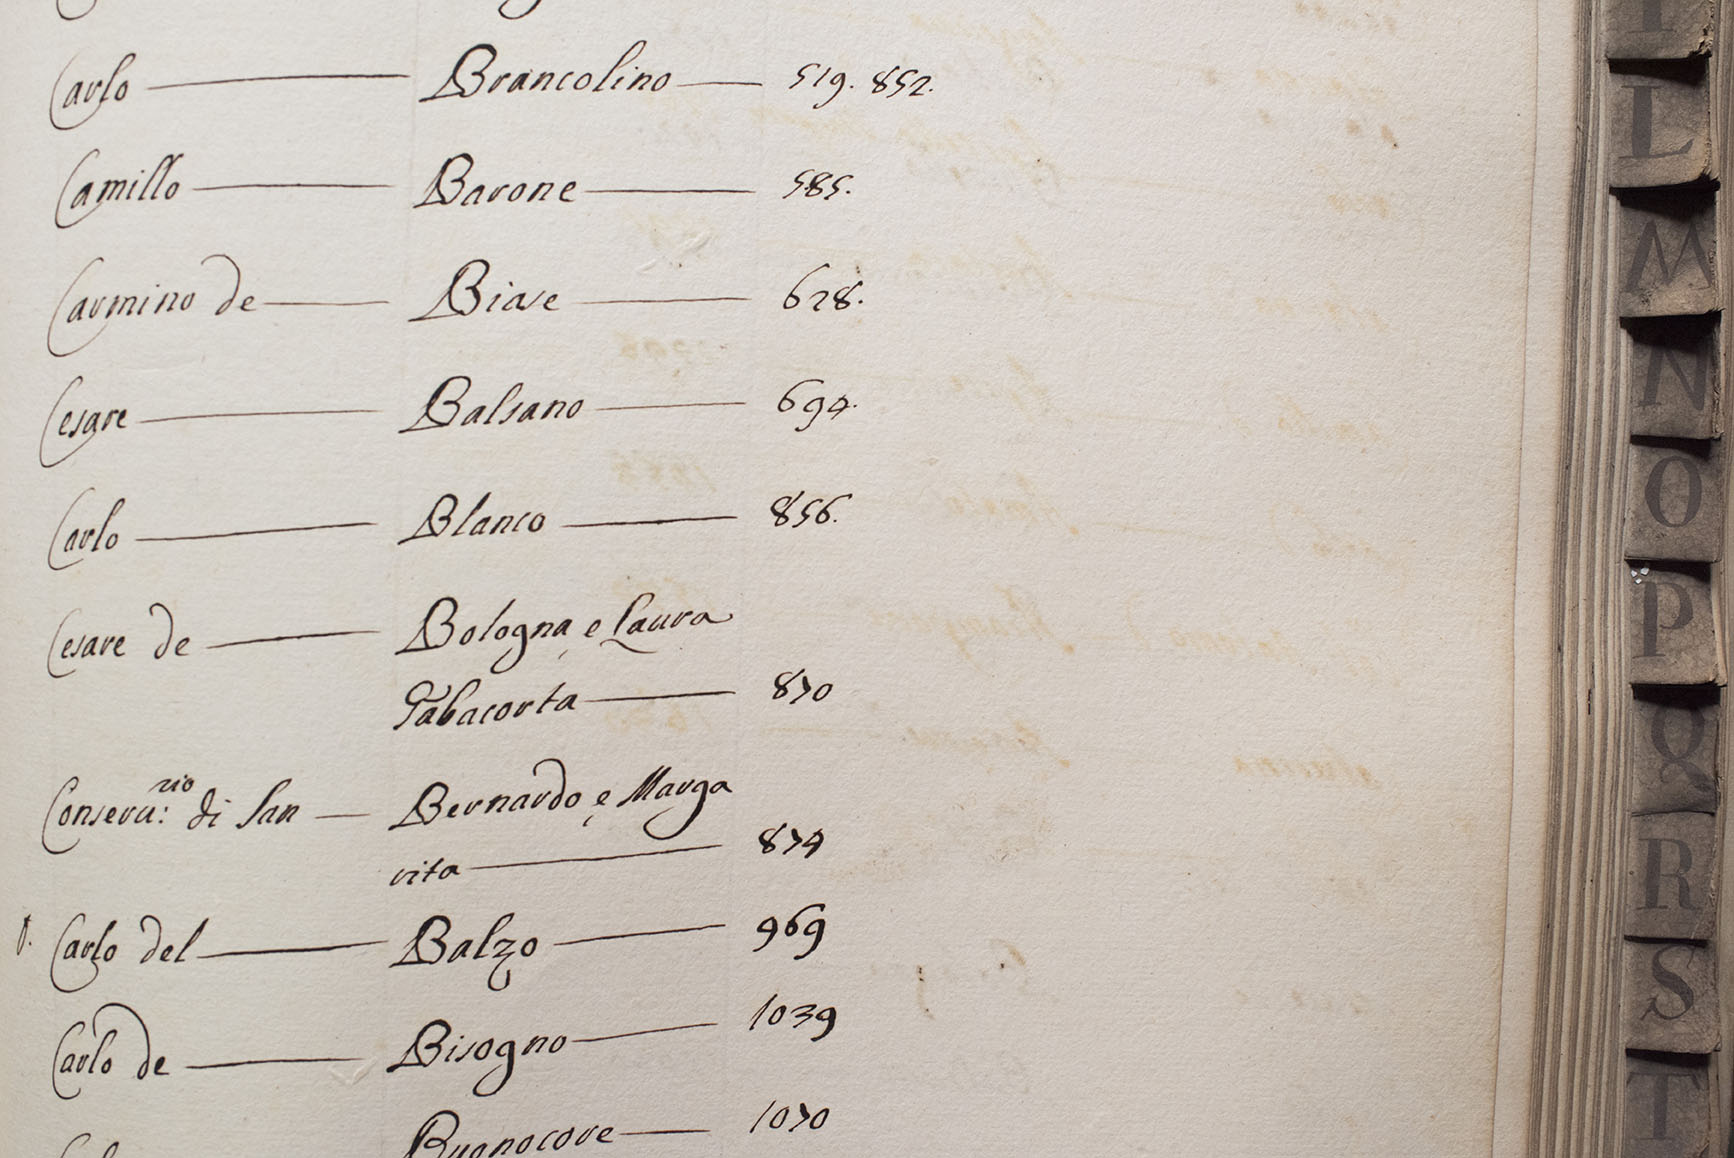 Carlo Brancolino 519. 852.
Camillo Barone 585.
Carmino de Biase 628.
Cesare Balsano 694.
Carlo Blanco 856.
Cesare de Bologna, e Laura
Tabacorta 870
Conseru:rio di San Bernardo, e Marga
rita 874
Carlo del Balzo 969
Carlo de Bisogno 1039
Buonocore 1070
L
M
N
O
P
Q
R
S
T